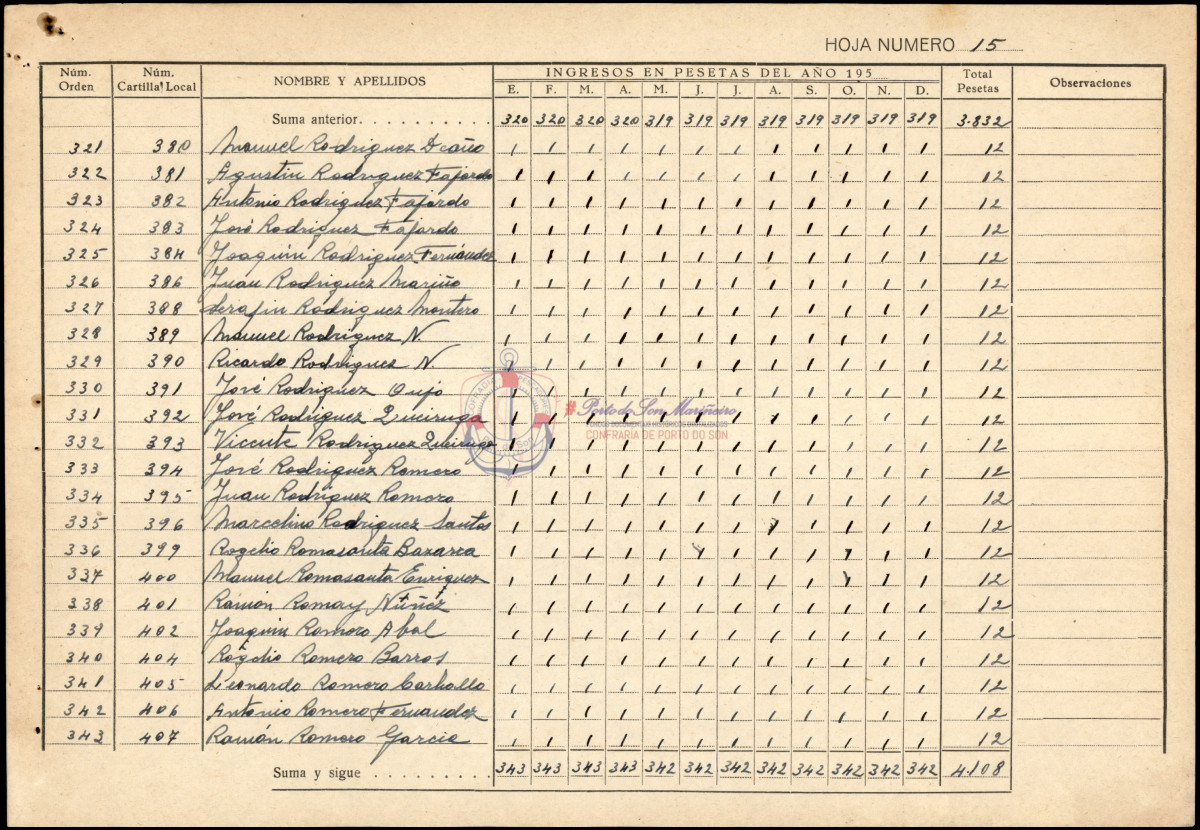 HOJA NUMERO 15
Núm. Orden Núm. Cartilla Local NOMBRE Y APELLIDOS INGRESOS EN PESETAS DEL AÑO 195 Total Pesetas Observaciones
E. F. M. A. M. J. J. A. S. O. N. D.
Suma anterior. 320 320 320 320 319 319 319 319 319 319 319 319 3.832
321 380 Manuel Rodriguez Deaño 1 1 1 1 1 1 1 1 1 1 1 1 12
322 381 Agustin Rodriguez Fajardo 1 1 1 1 1 1 1 1 1 1 1 1 12
323 382 Antonio Rodriguez Fajardo 1 1 1 1 1 1 1 1 1 1 1 1 12
324 383 José Rodriguez Fajardo 1 1 1 1 1 1 1 1 1 1 1 1 12
325 384 Joaquin Rodriguez Fernández 1 1 1 1 1 1 1 1 1 1 1 1 12
326 386 Juan Rodriguez Mariño 1 1 1 1 1 1 1 1 1 1 1 1 12
327 388 Serafin Rodriguez Montero 1 1 1 1 1 1 1 1 1 1 1 1 12
328 389 Manuel Rodriguez N. 1 1 1 1 1 1 1 1 1 1 1 1 12
329 390 Ricardo Rodriguez N. 1 1 1 1 1 1 1 1 1 1 1 1 12
330 391 José Rodriguez 1 1 1 1 1 1 1 1 1 1 1 1 12
331 392 José Rodriguez Queiruga 1 1 1 1 1 1 1 1 1 1 1 1 12
#Porto do Son Mariñeiro
FONDOS DOCUMENTAIS HISTÓRICOS DIXITALIZADOS
CONFRARIA DE PORTO DO SON
332 393 Vicente Rodriguez Queiruga 1 1 1 1 1 1 1 1 1 1 1 1 12
333 394 José Rodriguez Romero 1 1 1 1 1 1 1 1 1 1 1 1 12
334 395 Juan Rodriguez Romero 1 1 1 1 1 1 1 1 1 1 1 1 12
335 396 Marcelino Rodriguez Santos 1 1 1 1 1 1 1 1 1 1 1 1 12
336 399 Rogelio Romasanta 1 1 1 1 1 1 1 1 1 1 1 1 12
337 400 Manuel Romasanta Enriquez 1 1 1 1 1 1 1 1 1 1 1 1 12
338 401 Ramón Romay Núñez 1 1 1 1 1 1 1 1 1 1 1 1 12
339 402 Joaquin Romero Abal 1 1 1 1 1 1 1 1 1 1 1 1 12
340 404 Rogelio Romero Barros 1 1 1 1 1 1 1 1 1 1 1 1 12
341 405 Leonardo Romero Carballo 1 1 1 1 1 1 1 1 1 1 1 1 12
342 406 Antonio Romero Fernandez 1 1 1 1 1 1 1 1 1 1 1 1 12
343 407 Ramón Romero Garcia 1 1 1 1 1 1 1 1 1 1 1 1 12
Suma y sigue 343 343 343 343 342 342 342 342 342 342 342 342 4.108